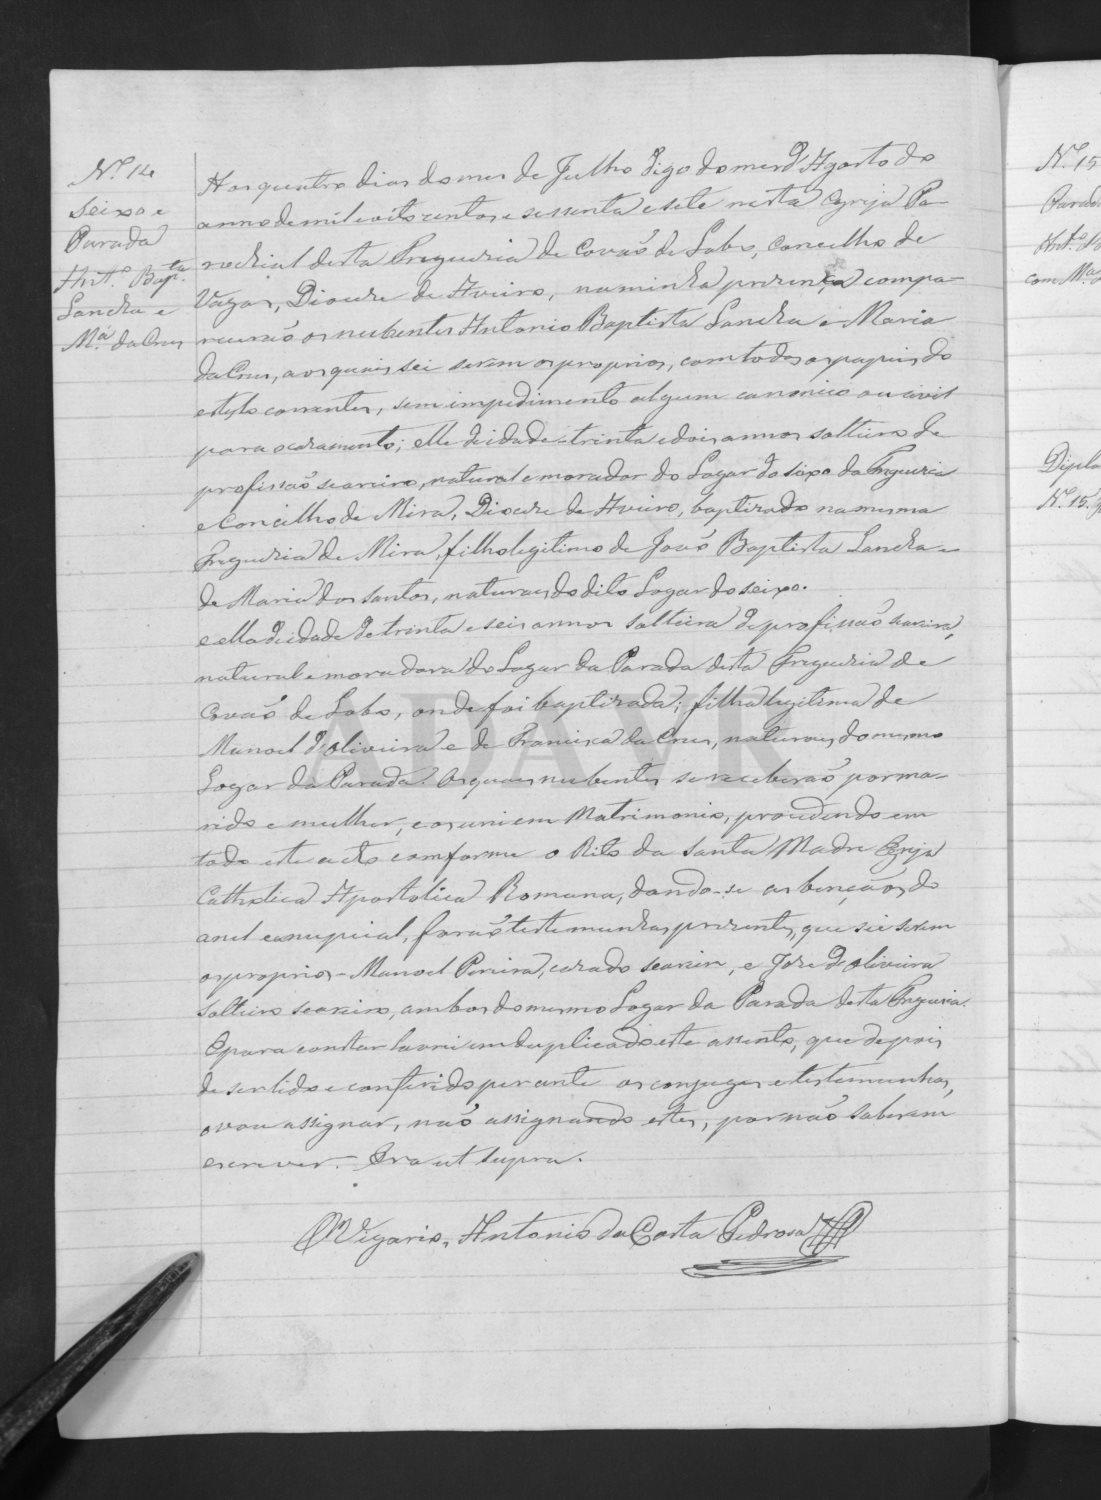 N.º 14
Seixo e
Parada
Ant.º Bapta.
Landra e
M.ª da Crus
Aos quatro dias do mes de Julho digo do mes d'Agosto do
anno de mil e oito centos e sessenta e sete nesta Egreja Pa-
rochial desta Freguezia de Covaõ de Lobo, Concelho de
Vagos, Diocese de Aveiro, na minha prezença compa-
receraõ os nubentes Antonio Baptista Landra e Maria
da Crus, aos quais sei serem os proprios, com todos os papeis do
estylo correntes, sem impedimento algum canonico ou civil
para o casamento; elle de idade trinta e dois annos solteiro de
profissaõ seareiro, natural e morador do Logar do Seixo da Freguezia
e Concilho de Mira, Diocese de Aveiro, baptizado na mesma
Freguezia de Mira, filho legitimo de Joaõ Baptista Landra e
de Maria dos Santos, naturaes do dito Logar do Seixo.
e ella de idade de trinta e seis annos solteira de profissaõ seareira,
natural e moradora do Logar da Parada desta Freguezia de
Covaõ de Lobo, onde foi baptizada; filha legitima de
Manoel d'Oliveira e de Francisca da Crus, naturaes do mesmo
Logar da Parada. Os quaes nubentes se receberaõ por ma-
rido e mulher, e os uni em Matrimonio, procedendo em
todo este acto comforme o Rito da Santa Madre Egreja
Catholica Apostolica Romana, dando-se as bençãos do
anel e nupcial, foraõ testemunhas prezentes, que sei serem
os proprios - Manoel Pereira, cazado seareiro, e Joze d'Oliveira
solteiro seareiro, ambos do mesmo Logar da Parada desta Freguezia.
E para constar lavrei em duplicado este assento, que depois
de ser lido e conferido perante os conjuges e testemunhas,
o vou assignar, naõ assignando estes, por naõ saberem
escrever. Era ut supra.
O Vigario, Antonio da Costa Pedrosa
ADAVR
N.º 15
Parada
Ant.º
com M.ª
N.º 15